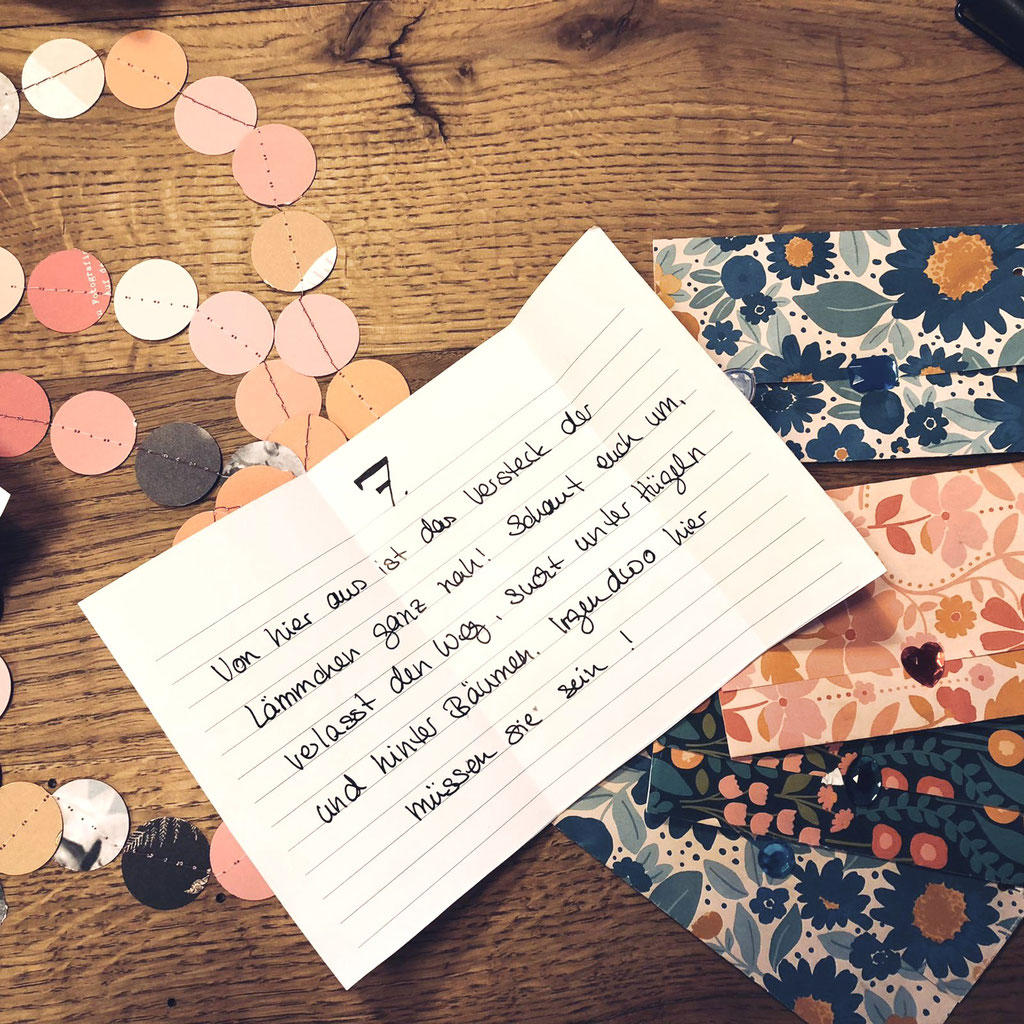 Fotografie
Auf de
7.
Von hier aus ist das Versteck der
Lämmchen ganz nah! Schaut euch um,
verlasst den Weg, sucht unter Hügeln
und hinter Bäumen. Irgendwo hier
müssen sie sein!